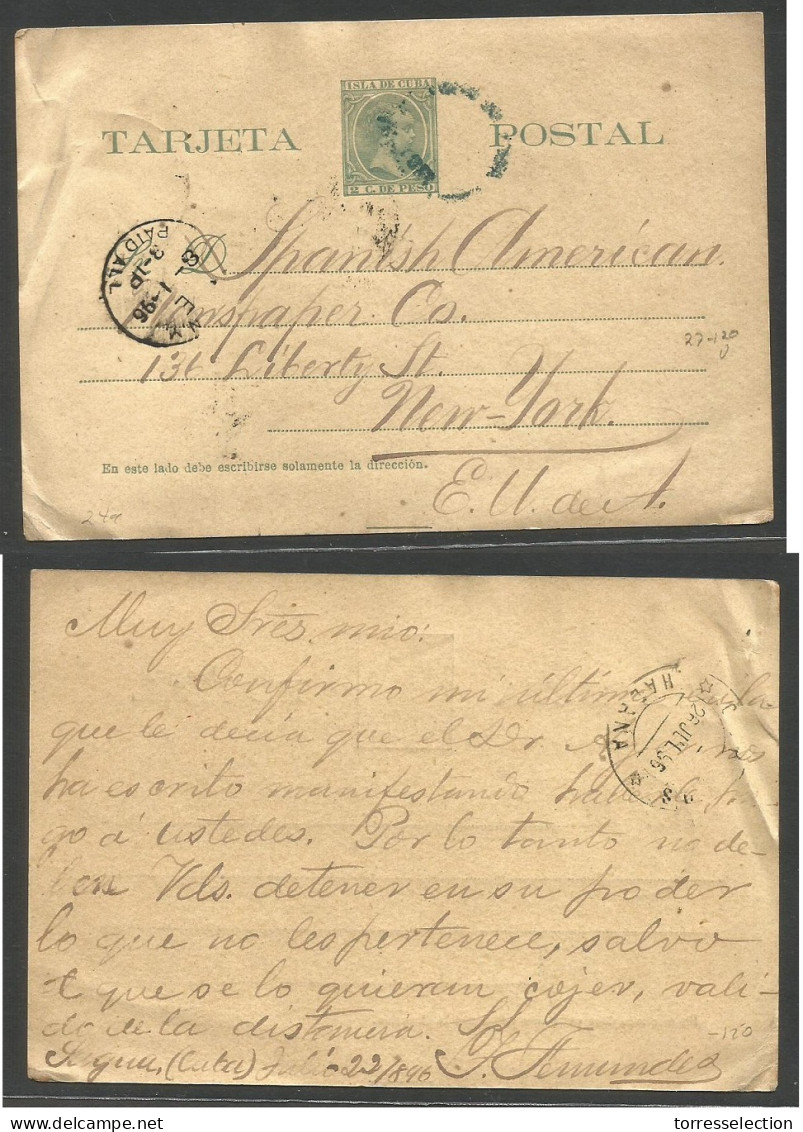 ISLA DE CUBA
TARJETA POSTAL
2 C. DE PESO
PAID ALL
3-1P
1-96
Spanish American
Newspaper Co.
27-120
136 Liberty St.
New-York.
En este lado debe escribirse solamente la dirección.
E. U. de A.
24a
Muy Sres. mio:
Confirmo mi última
que le decía que el Sr nos
ha escrito manifestando
go á ustedes. Por lo tanto no de-
ben Vds. detener en su poder
lo que no les pertenece, salvo
que se lo quieran cojer, vali-
do de la distancia.
HABANA
26 JUL 96
-120
Sagua, (Cuba) Julio 22/896
torresselection